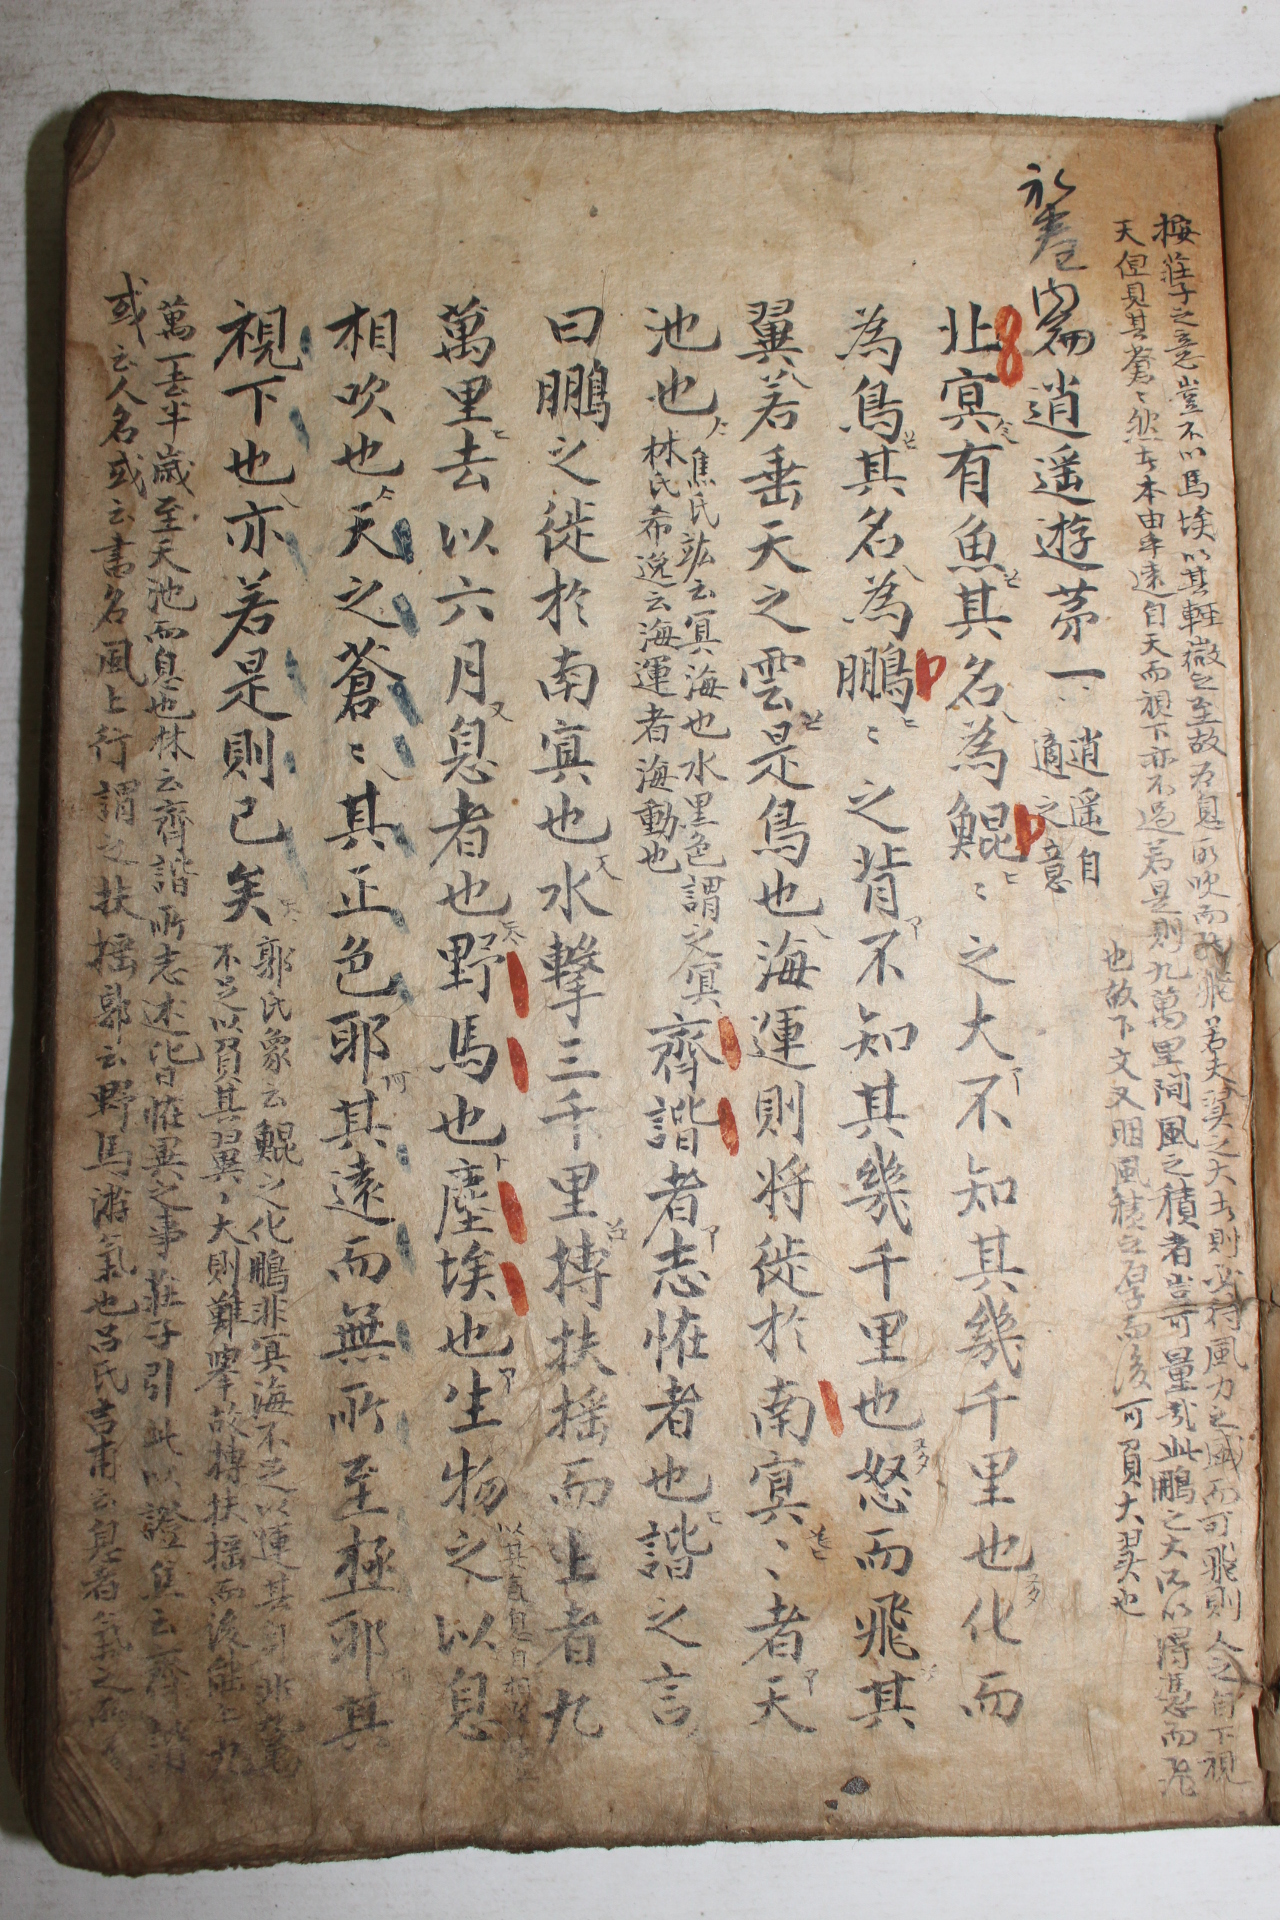 按莊子之意豈不以馬埃以其輕微之至故為息所吹而能飛若夫溟之大者則必待風力之盛而可飛則人之自下視
天但見其蒼〻然者本由乎遠自天而視下亦不過若是則九萬里間風之積者豈可量哉此鵬之大所以得憑而飛
也故下文又明風積之厚而後可負大翼也
內篇逍遥遊苐一
逍遥自
適之意
北冥有魚其名為鯤〻之大不知其幾千里也化而
為鳥其名為鵬〻之背不知其幾千里也怒而飛其
翼若垂天之雲是鳥也海運則將徙於南冥〻者天
池也
焦氏竑云冥海也水黑色謂之冥
林氏希逸云海運者海動也
齊諧者志恠者也諧之言
曰鵬之徙於南冥也水擊三千里摶扶搖而上者九
萬里去以六月息者也野馬也塵埃也生物之以息
相吹也天之蒼〻其正色耶其遠而無所至極耶其
視下也亦若是則已矣
郭氏象云鯤之化鵬非冥海不足以運其身非九萬
不足以負其翼〻大則難擧故摶扶搖而後能上九
萬一去半歲至天池而息也林云齊諧所志述皆恠異之事莊子引此以證焦云齊諧
或云人名或云書名風上行謂之扶搖郭云野馬游氣也呂氏吉甫云息者氣之所